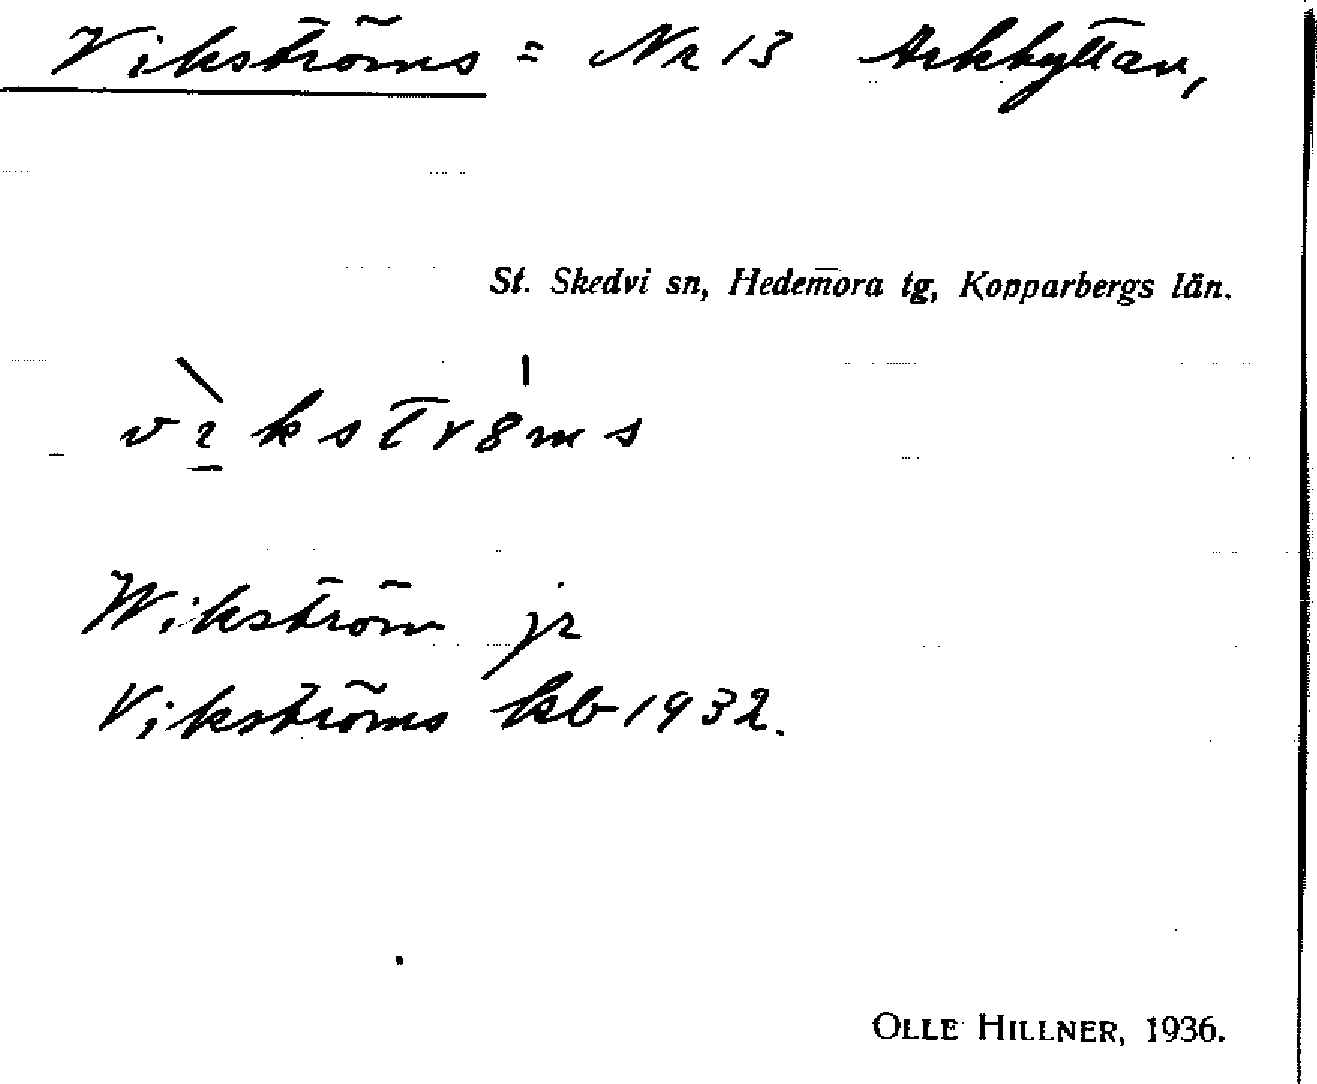 Vikströms = Nr 13 Arkhyttan,
St. Skedvi sn, Hedemora tg, Kopparbergs län.
vikströms
Wikström jr
Vikströms kb 1932.
OLLE HILLNER, 1936.